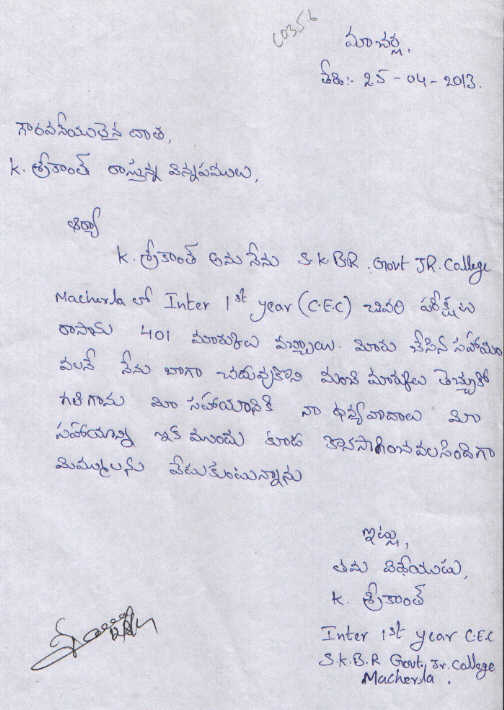 C0356
మాచర్ల,
తేది:- 25-04-2013.
గౌరవనీయులైన దాత,
K. శ్రీకాంత్ రాస్తున్న విన్నపములు,
ఆర్యా
K. శ్రీకాంత్ అను నేను S.K.B.R. Govt JR. College
Macherla లో Inter 1st year (C.E.C) చివరి పరీక్షలు
రాసాను 401 మార్కులు వచ్చాయి. మీరు చేసిన సహాయం
వలనే నేను బాగా చదువుకొని మంచి మార్కులు తెచ్చుకో
గలిగాను మీ సహాయానికి నా ధన్యవాదాలు మీ
సహాయాన్ని ఇక ముందు కూడ కొనసాగించవలసిందిగా
మిమ్ములను వేడుకుంటున్నాను
ఇట్లు,
తమ విధేయుడు,
K. శ్రీకాంత్
Inter 1st year C.E.C
S.K.B.R Govt, Jr. College
Macherla.